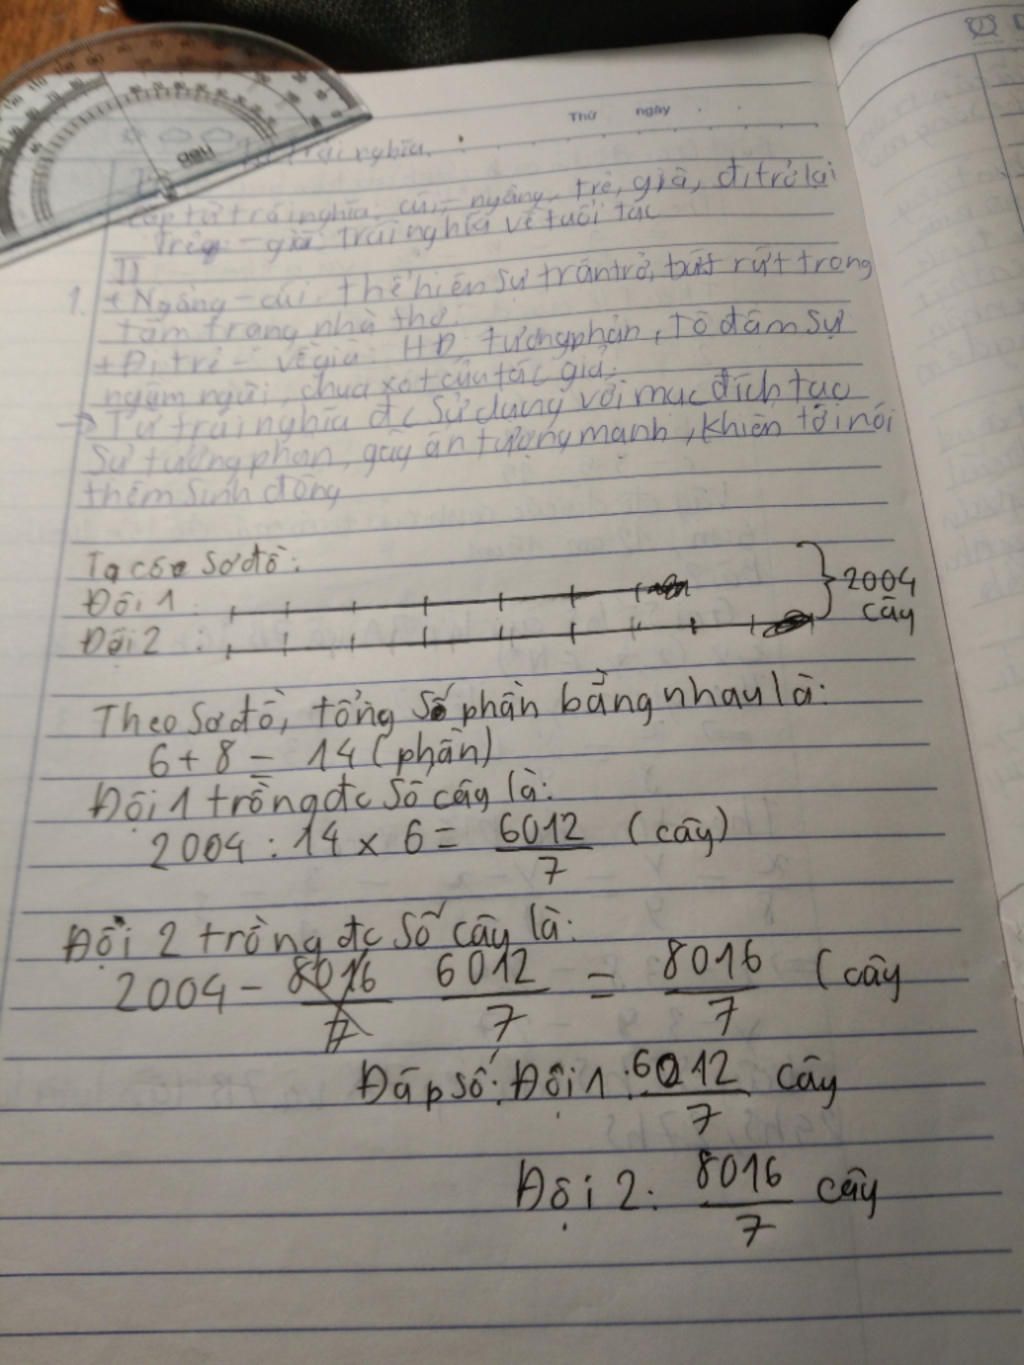 Thứ ngày
deli
Trái nghĩa.
cặp từ trái nghĩa: cúi - ngẩng, trẻ, già, đi trở lại
Trẻ - già: trái nghĩa về tuổi tác
II
1. + Ngẩng - cúi: thể hiện sự trăn trở, rứt trong
tâm trạng nhà thơ.
+ Đi trẻ - về già: HĐ, tương phản, Tô đâm sự
ngậm ngùi, chua xót của tác giả.
→ Từ trái nghĩa đc sử dụng với mục đích tạo
sự tương phản, gây ấn tượng mạnh, khiến lời nói
thêm sinh động
Ta có Sơ đồ:
Đội 1 :
2004
cây
Đội 2 :
Theo Sơ đồ, tổng số phần bằng nhau là:
6 + 8 = 14 (phần)
Đội 1 trồng đc số cây là:
2004 : 14 x 6 = 6012/7 (cây)
Đội 2 trồng đc số cây là:
2004 - 6012/7 = 8016/7 (cây
Đáp số: Đội 1: 6012/7 cây
Đội 2: 8016/7 cây